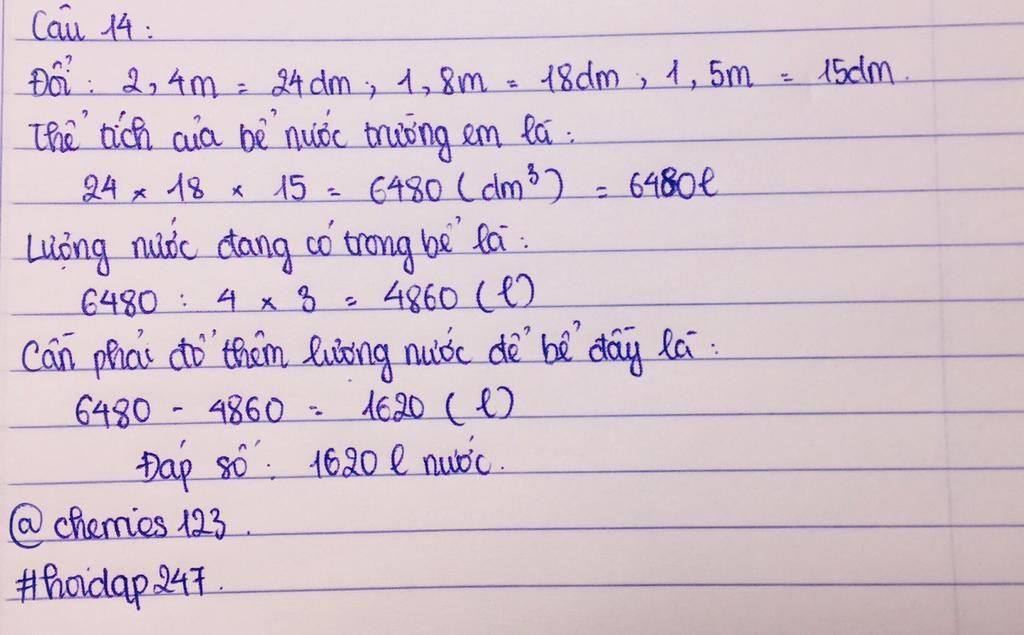 Câu 14:
Đổi: 2,4m = 24dm; 1,8m = 18dm; 1,5m = 15dm.
Thể tích của bể nước trường em là:
24 × 18 × 15 = 6480 (dm³) = 6480l
Lượng nước đang có trong bể là:
6480 : 4 × 3 = 4860 (l)
Cần phải đổ thêm lượng nước để bể đầy là:
6480 - 4860 = 1620 (l)
Đáp số: 1620 l nước.
@chemies123.
#hoidap247.